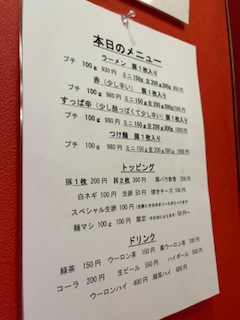 本日のメニュー
ラーメン 豚1枚入り
プチ 100g 930円 ミニ150g 並200g 300g
赤(少し辛い) 豚1枚入り
プチ 100g 980円 ミニ150g 並200g 300g
すっぱ辛(少し酸っぱくて少し辛い) 豚1枚入り
プチ 100g 980円 ミニ150g 並200g 300g
つけ麺 豚1枚入り
プチ 100g 980円 ミニ150g 並200g 300g
トッピング
豚1枚 200円 豚2枚 300円 豚バラ軟骨 200円
白ネギ 100円 生卵 50円 焼きチーズ 100円
スペシャル生卵 100円
麺マシ 100g 100円 限定 50円〜
ドリンク
緑茶 150円 ウーロン茶 150円 黒ウーロン茶 200円
コーラ 200円 生ビール 550円 ハイボール 500円
ウーロンハイ 400円 緑茶ハイ 400円